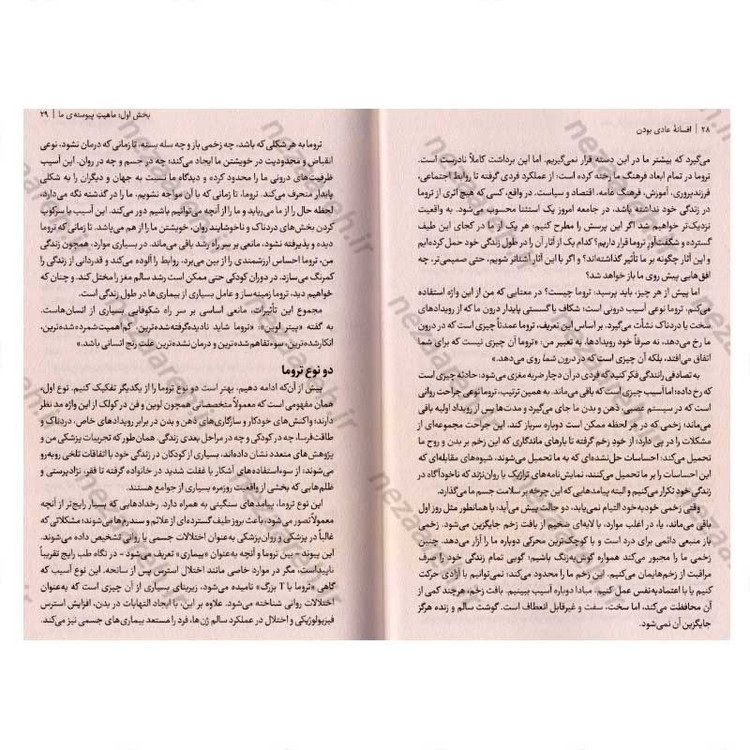 ۲۸ | افسانهٔ عادی بودن
می‌گیرد که بیشتر ما در این دسته قرار نمی‌گیریم. اما این برداشت کاملاً نادرست است.
تروما در تمام ابعاد فرهنگ ما رخنه کرده است؛ از عملکرد فردی گرفته تا روابط اجتماعی،
فرزندپروری، آموزش، فرهنگ عامه، اقتصاد و سیاست. در واقع، کسی که هیچ اثری از تروما
در زندگی خود نداشته باشد، در جامعه امروز یک استثنا محسوب می‌شود. به واقعیت
نزدیک‌تر خواهیم شد اگر این پرسش را مطرح کنیم: هر یک از ما در کجای این طیف
گسترده و شگفت‌آور تروما قرار داریم؟ کدام یک از آثار آن را در طول زندگی خود حمل کرده‌ایم
و این آثار چگونه بر ما تأثیر گذاشته‌اند؟ و اگر با این آثار آشناتر شویم، حتی صمیمی‌تر، چه
افق‌هایی پیش روی ما باز خواهد شد؟
اما پیش از هر چیز، باید پرسید: تروما چیست؟ در معنایی که من از این واژه استفاده
می‌کنم، تروما نوعی آسیب درونی است؛ شکاف یا گسستی پایدار درون ما که از رویدادهای
سخت یا دردناک نشأت می‌گیرد. بر اساس این تعریف، تروما عمدتاً چیزی است که در درون
ما رخ می‌دهد، نه صرفاً خود رویدادها به تعبیر من: «تروما آن چیزی نیست که برای شما
اتفاق می‌افتد، بلکه آن چیزی است که در درون شما روی می‌دهد.»
به تصادفی رانندگی فکر کنید که فردی در آن دچار ضربه مغزی می‌شود: حادثه چیزی است
که رخ داده؛ اما آسیب چیزی است که باقی می‌ماند. به همین ترتیب، تروما نوعی جراحت روانی
است که در سیستم عصبی، ذهن و بدن ما جای می‌گیرد و مدت‌ها پس از رویداد اولیه باقی
می‌ماند؛ زخمی که در هر لحظه ممکن است دوباره سرباز کند. این جراحت مجموعه‌ای از
مشکلات را در پی دارد: از خود زخم گرفته تا بارهای ماندگاری که این زخم بر بدن و روح ما
تحمیل می‌کند؛ احساسات حل‌نشده‌ای که به ما تحمیل می‌شوند، شیوه‌های مقابله‌ای که
این احساسات را بر ما تحمیل می‌کنند، نمایش‌نامه‌های تراژیک یا روان‌نژند که ناخودآگاه در
زندگی خود تکرار می‌کنیم و البته پیامدهایی که این چرخه بر سلامت جسم ما می‌گذارد.
وقتی زخمی خودبه‌خود التیام نمی‌یابد، دو حالت پیش می‌آید: یا همانطور مثل روز اول
باقی می‌ماند، یا، در اغلب موارد، با لایه‌ای ضخیم از بافت زخم جایگزین می‌شود. زخمی
باز منبعی دائمی برای درد است و با کوچک‌ترین محرکی دوباره ما را آزار می‌دهد. چنین
زخمی ما را مجبور می‌کند همواره گوش‌به‌زنگ باشیم؛ گویی تمام زندگی خود را صرف
مراقبت از زخم‌هایمان می‌کنیم. این زخم ما را محدود می‌کند؛ نمی‌توانیم با آزادی حرکت
کنیم یا با اعتمادبه‌نفس عمل کنیم، مبادا دوباره آسیب ببینیم. بافت زخم، هرچند کمی از
آن محافظت می‌کند، اما سخت، سفت و غیرقابل انعطاف است. گوشت سالم و زنده هرگز
جایگزین آن نمی‌شود.
بخش اول: ماهیت پیوسته‌ی ما | ۲۹
تروما به هر شکلی که باشد، چه زخمی باز و چه سله بسته، تا زمانی که درمان نشود، نوعی
انقباض و محدودیت در خویشتن ما ایجاد می‌کند؛ چه در جسم و چه در روان. این آسیب
ظرفیت‌های درونی ما را محدود کرده و دیدگاه ما نسبت به جهان و دیگران را به شکلی
پایدار منحرف می‌کند. تروما، تا زمانی که با آن مواجه نشویم، ما را در گذشته نگه می‌دارد،
لحظه حال را از ما می‌رباید و ما را از آنچه می‌توانیم باشیم دور می‌کند. این آسیب با سرکوب
کردن بخش‌های دردناک و ناخوشایند روان، خویشتن ما را از هم می‌پاشد. تا زمانی که تروما
دیده و پذیرفته نشود، مانعی بر سر راه رشد باقی می‌ماند. در بسیاری موارد، همچون زندگی
من، تروما احساس ارزشمندی را از بین می‌برد، روابط را آلوده می‌کند و قدردانی از زندگی را
کمرنگ می‌سازد. در دوران کودکی حتی ممکن است رشد سالم مغز را مختل کند. و چنان که
خواهیم دید، تروما زمینه‌ساز و عامل بسیاری از بیماری‌ها در طول زندگی است.
مجموع این تأثیرات، مانعی اساسی بر سر راه شکوفایی بسیاری از انسان‌هاست.
به گفته «پیتر لوین»: «تروما شاید نادیده‌گرفته‌شده‌ترین، کم‌اهمیت‌شمرده‌شده‌ترین،
انکارشده‌ترین، سوءتفاهم‌شده‌ترین و درمان نشده‌ترین علت رنج انسانی باشد.»
دو نوع تروما
پیش از آن‌که ادامه دهیم، بهتر است دو نوع تروما را از یکدیگر تفکیک کنیم. نوع اول،
همان مفهومی است که معمولاً متخصصانی همچون لوین و فن در کولک از این واژه مد نظر
دارند: واکنش‌های خودکار و سازگاری‌های ذهن و بدن در برابر رویدادهای خاص، دردناک و
طاقت‌فرسا، چه در کودکی و چه در مراحل بعدی زندگی. همان‌طور که تجربیات پزشکی من و
پژوهش‌های متعدد نشان داده‌اند، بسیاری از کودکان در زندگی خود با اتفاقات تلخی روبه‌رو
می‌شوند؛ از سوءاستفاده‌های آشکار یا غفلت شدید در خانواده گرفته تا فقر، نژادپرستی و
ظلم‌هایی که بخشی از واقعیت روزمره بسیاری از جوامع هستند.
این نوع تروما، پیامدهای سنگینی به همراه دارد. رخدادهایی که بسیار رایج‌تر از آنچه
معمولاً تصور می‌شود، باعث بروز طیف گسترده‌ای از علائم و سندرم‌ها می‌شوند؛ مشکلاتی که
غالباً در پزشکی و روان‌پزشکی به‌عنوان اختلالات جسمی یا روانی تشخیص داده می‌شوند.
این پیوند – بین تروما و آنچه به‌عنوان «بیماری» تعریف می‌شود – در نگاه طب رایج تقریباً
ناپیداست، مگر در موارد خاصی مانند اختلال استرس پس از سانحه. این نوع آسیب که
گاهی «تروما با T بزرگ» نامیده می‌شود، زیربنای بسیاری از آن چیزی است که به‌عنوان
اختلالات روانی شناخته می‌شود. علاوه بر این، با ایجاد التهابات در بدن، افزایش استرس
فیزیولوژیکی و اختلال در عملکرد سالم ژن‌ها، فرد را مستعد بیماری‌های جسمی نیز می‌کند.